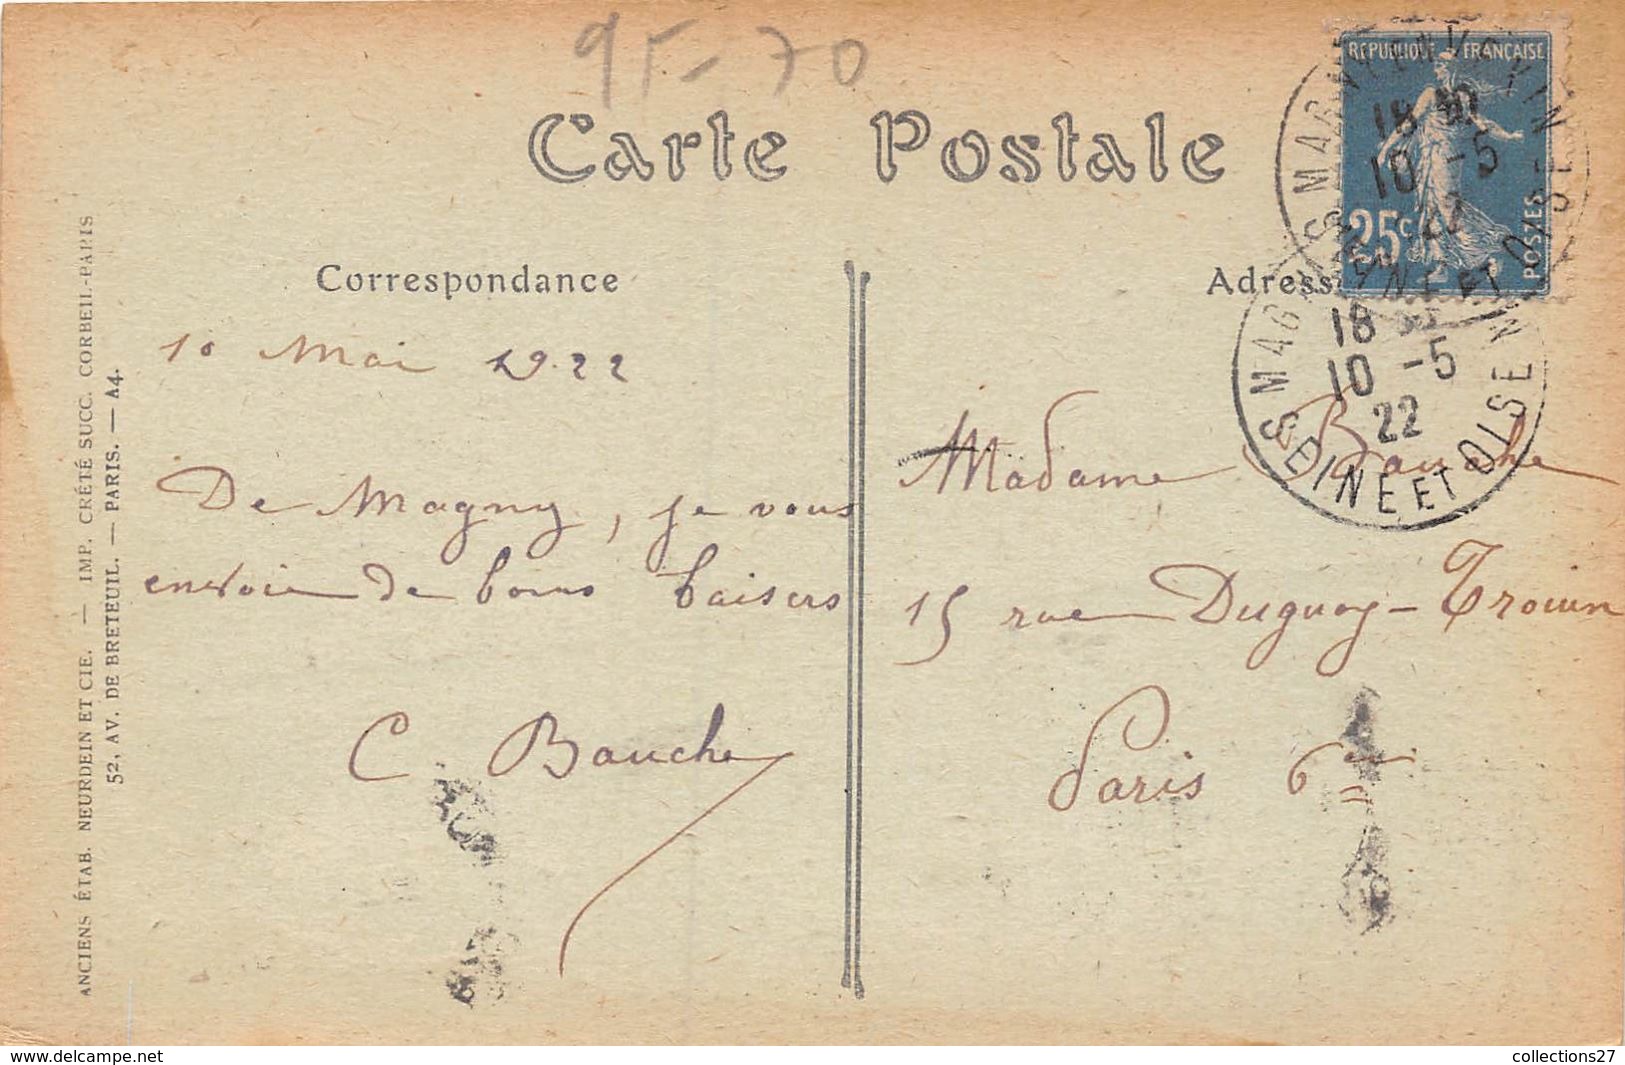 95-70
Carte Postale
RÉPUBLIQUE FRANÇAISE
25c
POSTES
18
10 -5
22
SEINE ET OISE
Correspondance
Adress
18
10 -5
22
SEINE ET OISE
10 Mai 1922
De Magny, je vous
envoie de bons baisers
C Bauche
Madame Bauche
15 rue Duguay-Trouin
Paris 6
ANCIENS ÉTAB. NEURDEIN ET CIE. — IMP. CRÉTÉ SUCC. CORBEIL-PARIS
52, AV. DE BRETEUIL. — PARIS. — A4.
www.delcampe.net
collections27